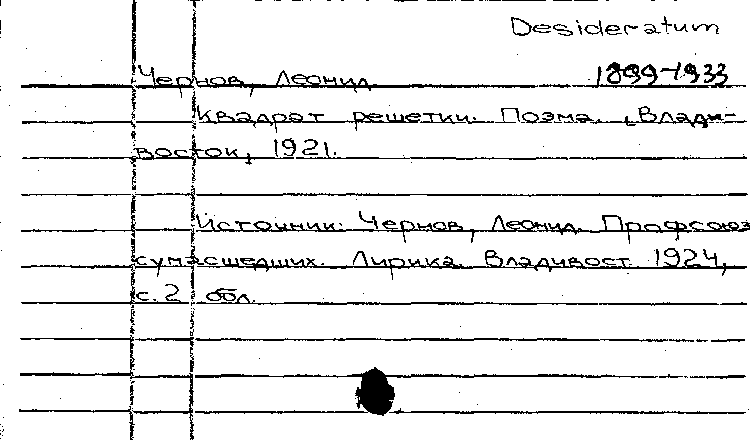 Desideratum
Чернов, Леонид 1899-1933
Квадрат решетки. Поэма. [Влади-
восток, 1921.
Источник: Чернов, Леонид. Профсоюз
сумасшедших. Лирика. Владивост. 1924,
с. 2 обл.